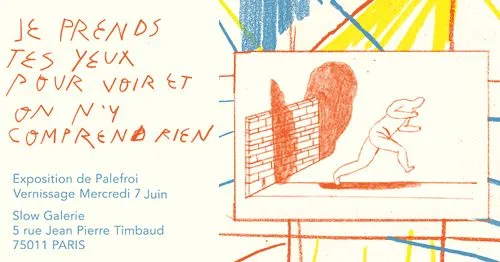 JE PRENDS
TES YEUX
POUR VOIR ET
ON N'Y
COMPREND RIEN
Exposition de Palefroi
Vernissage Mercredi 7 Juin
Slow Galerie
5 rue Jean Pierre Timbaud
75011 PARIS